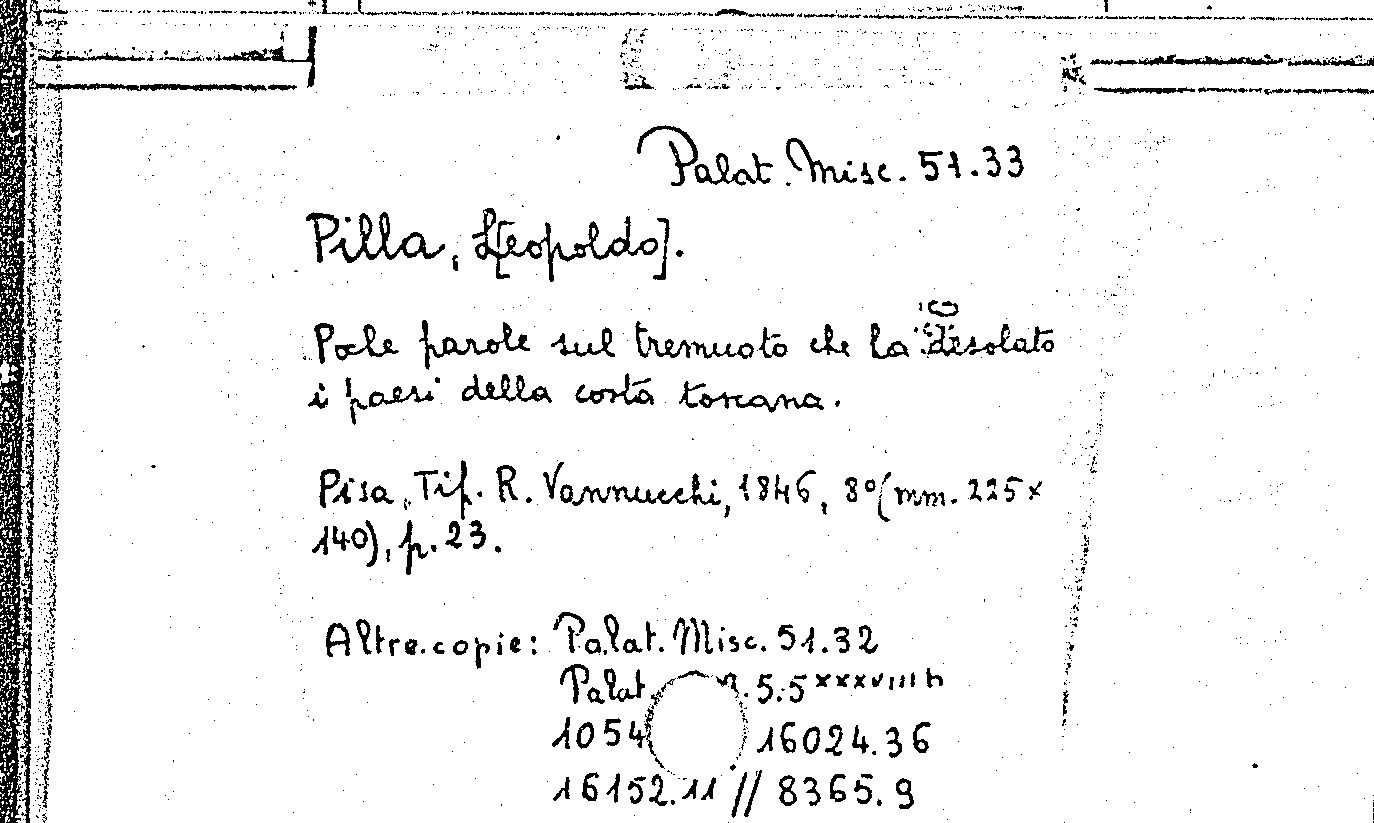 Palat. Misc. 51.33
Pilla, L[eopoldo].
Poche parole sul tremuoto che ha desolato
i paesi della costa toscana.
Pisa, Tip. R. Vannucchi, 1846, 8° (mm. 225x
140), p. 23.
Altre copie: Palat. Misc. 51.32
Palat. 5.5 xxxviii b
1054 16024.36
16152.11 // 8365.9